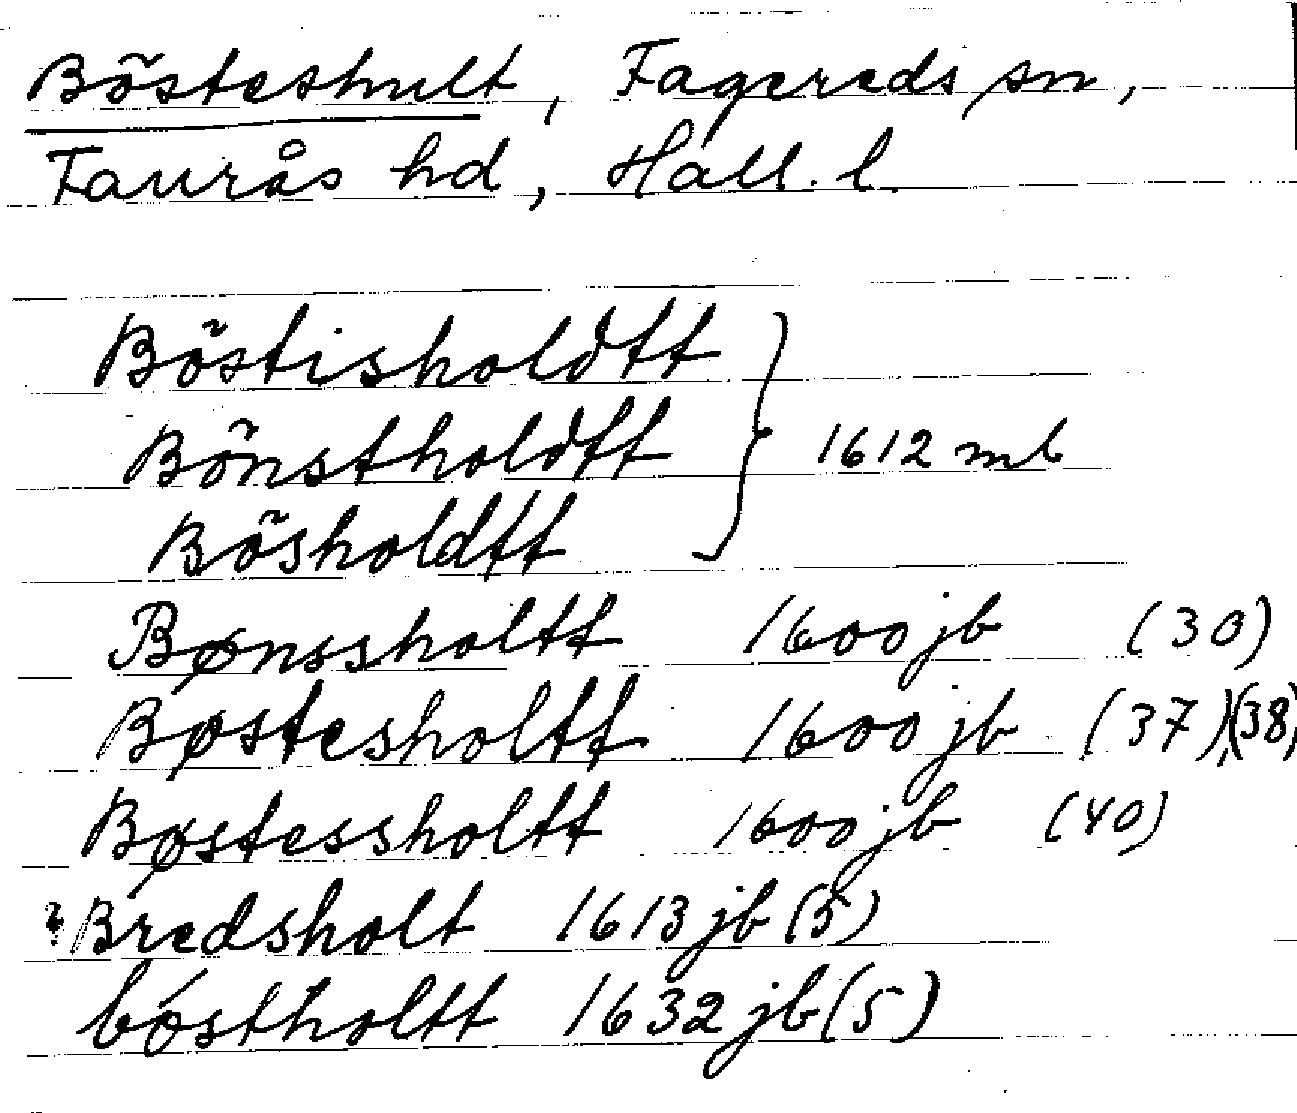 Bösteshult, Fagereds sn,
Faurås hd, Hall. l.
Böstisholdtt
Bönstholdtt } 1612 mb
Bösholdtt
Bønssholtt 1600 jb (30)
Bøstesholtt 1600 jb (37), (38)
Bøstessholtt 1600 jb (40)
? Bredsholt 1613 jb (5)
bóstholtt 1632 jb (5)